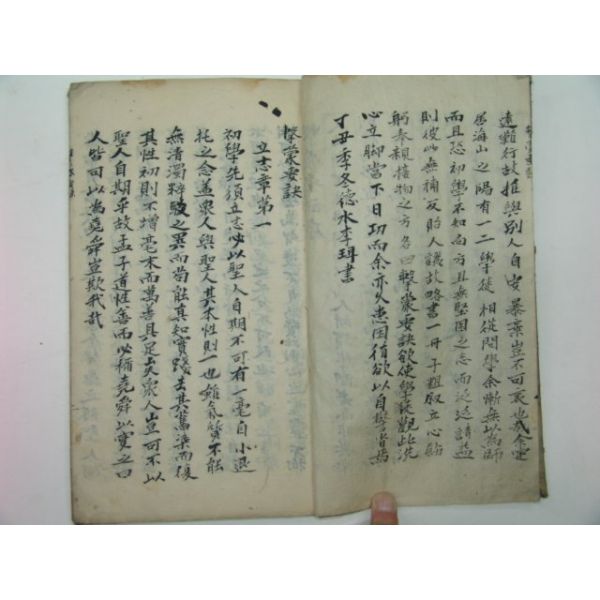 遠難行故推與別人自安暴棄豈不可哀也哉余定
居海山之陽有一二學徒相從問學余慚無以爲師
而且恐初學不知向方且無堅固之志而泛泛請益
則彼此無補反貽人譏故略書一冊子粗敍立心飭
躬奉親接物之方名曰擊蒙要訣欲使學徒觀此洗
心立脚當下日功而余亦久患因循欲以自警省焉
丁丑季冬德水李珥書
擊蒙要訣
立志章第一
初學先須立志必以聖人自期不可有一毫自小退
托之念盖衆人與聖人其本性則一也雖氣質不能
無淸濁粹駁之異而苟能眞知實踐去其舊染而復
其性初則不增毫末而萬善具足矣衆人豈可不以
聖人自期乎故孟子道性善而必稱堯舜以實之曰
人皆可以爲堯舜豈欺我哉